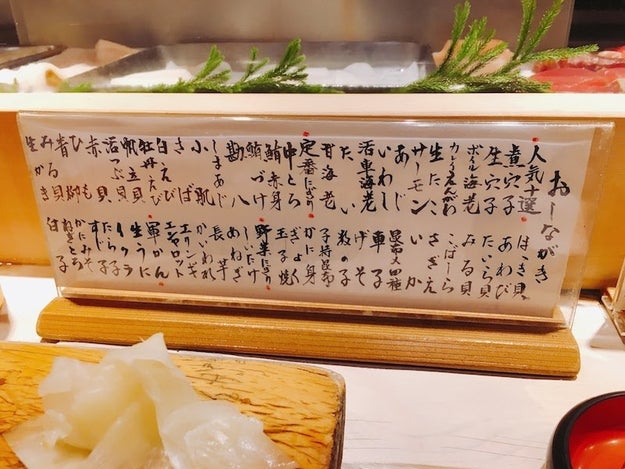 おしながき
人気十選
煮穴子
生穴子
ボイル海老
カレイえんがわ
生たこ
サーモン
いわし
あじ
たい
活車海老
甘海老
定番にぎり
中とろ
鮪赤身
鮪づけ
勘八
しまあじ
小肌
さば
白えび
牡丹えび
帆立貝
活つぶ貝
赤貝
ひも
青柳
みる貝
生かき
ほっき貝
あわび
たいら貝
みる貝
こばしら
さざえ
いか
昆布〆四種
げそ
数の子
子持昆布
かに身
ぎょく
玉子焼
野菜にぎり
しいたけ
長芋
かいわれ
エリンギ
エシャロット
軍かん
生うに
イクラ
たらこ
かにみそ
ねぎとろ
白子